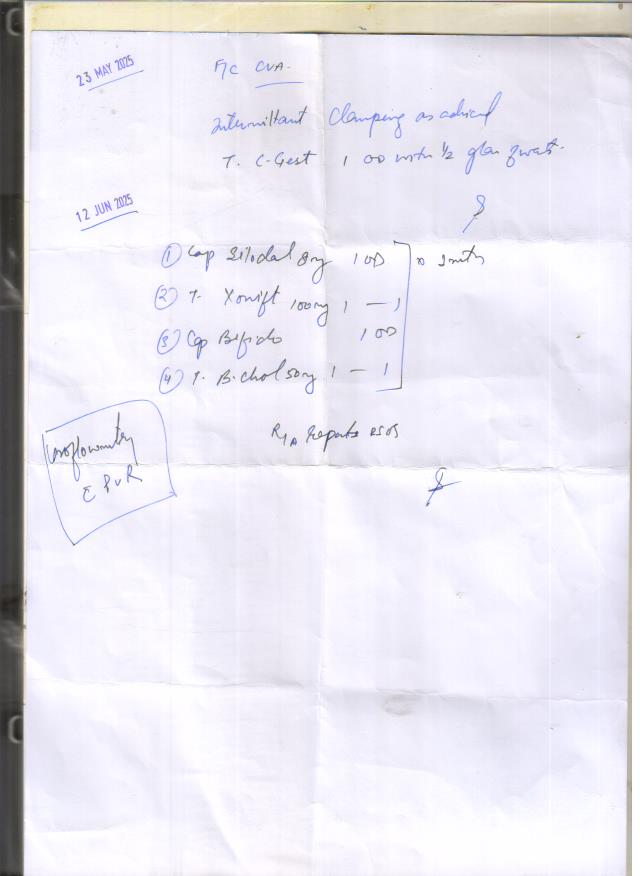 23 MAY 2025
F/C CVA.
Intermittant Clamping as advised
T. C-Gest 1 OD with 1/2 glass of water.
12 JUN 2025
① Cap Silodal 8mg 1 OD
② T. 100mg 1 — 1
③ Cap Bifido 1 OD
④ T. B-chol 50mg 1 — 1
R/A Reports
uroflowmetry
c PVR